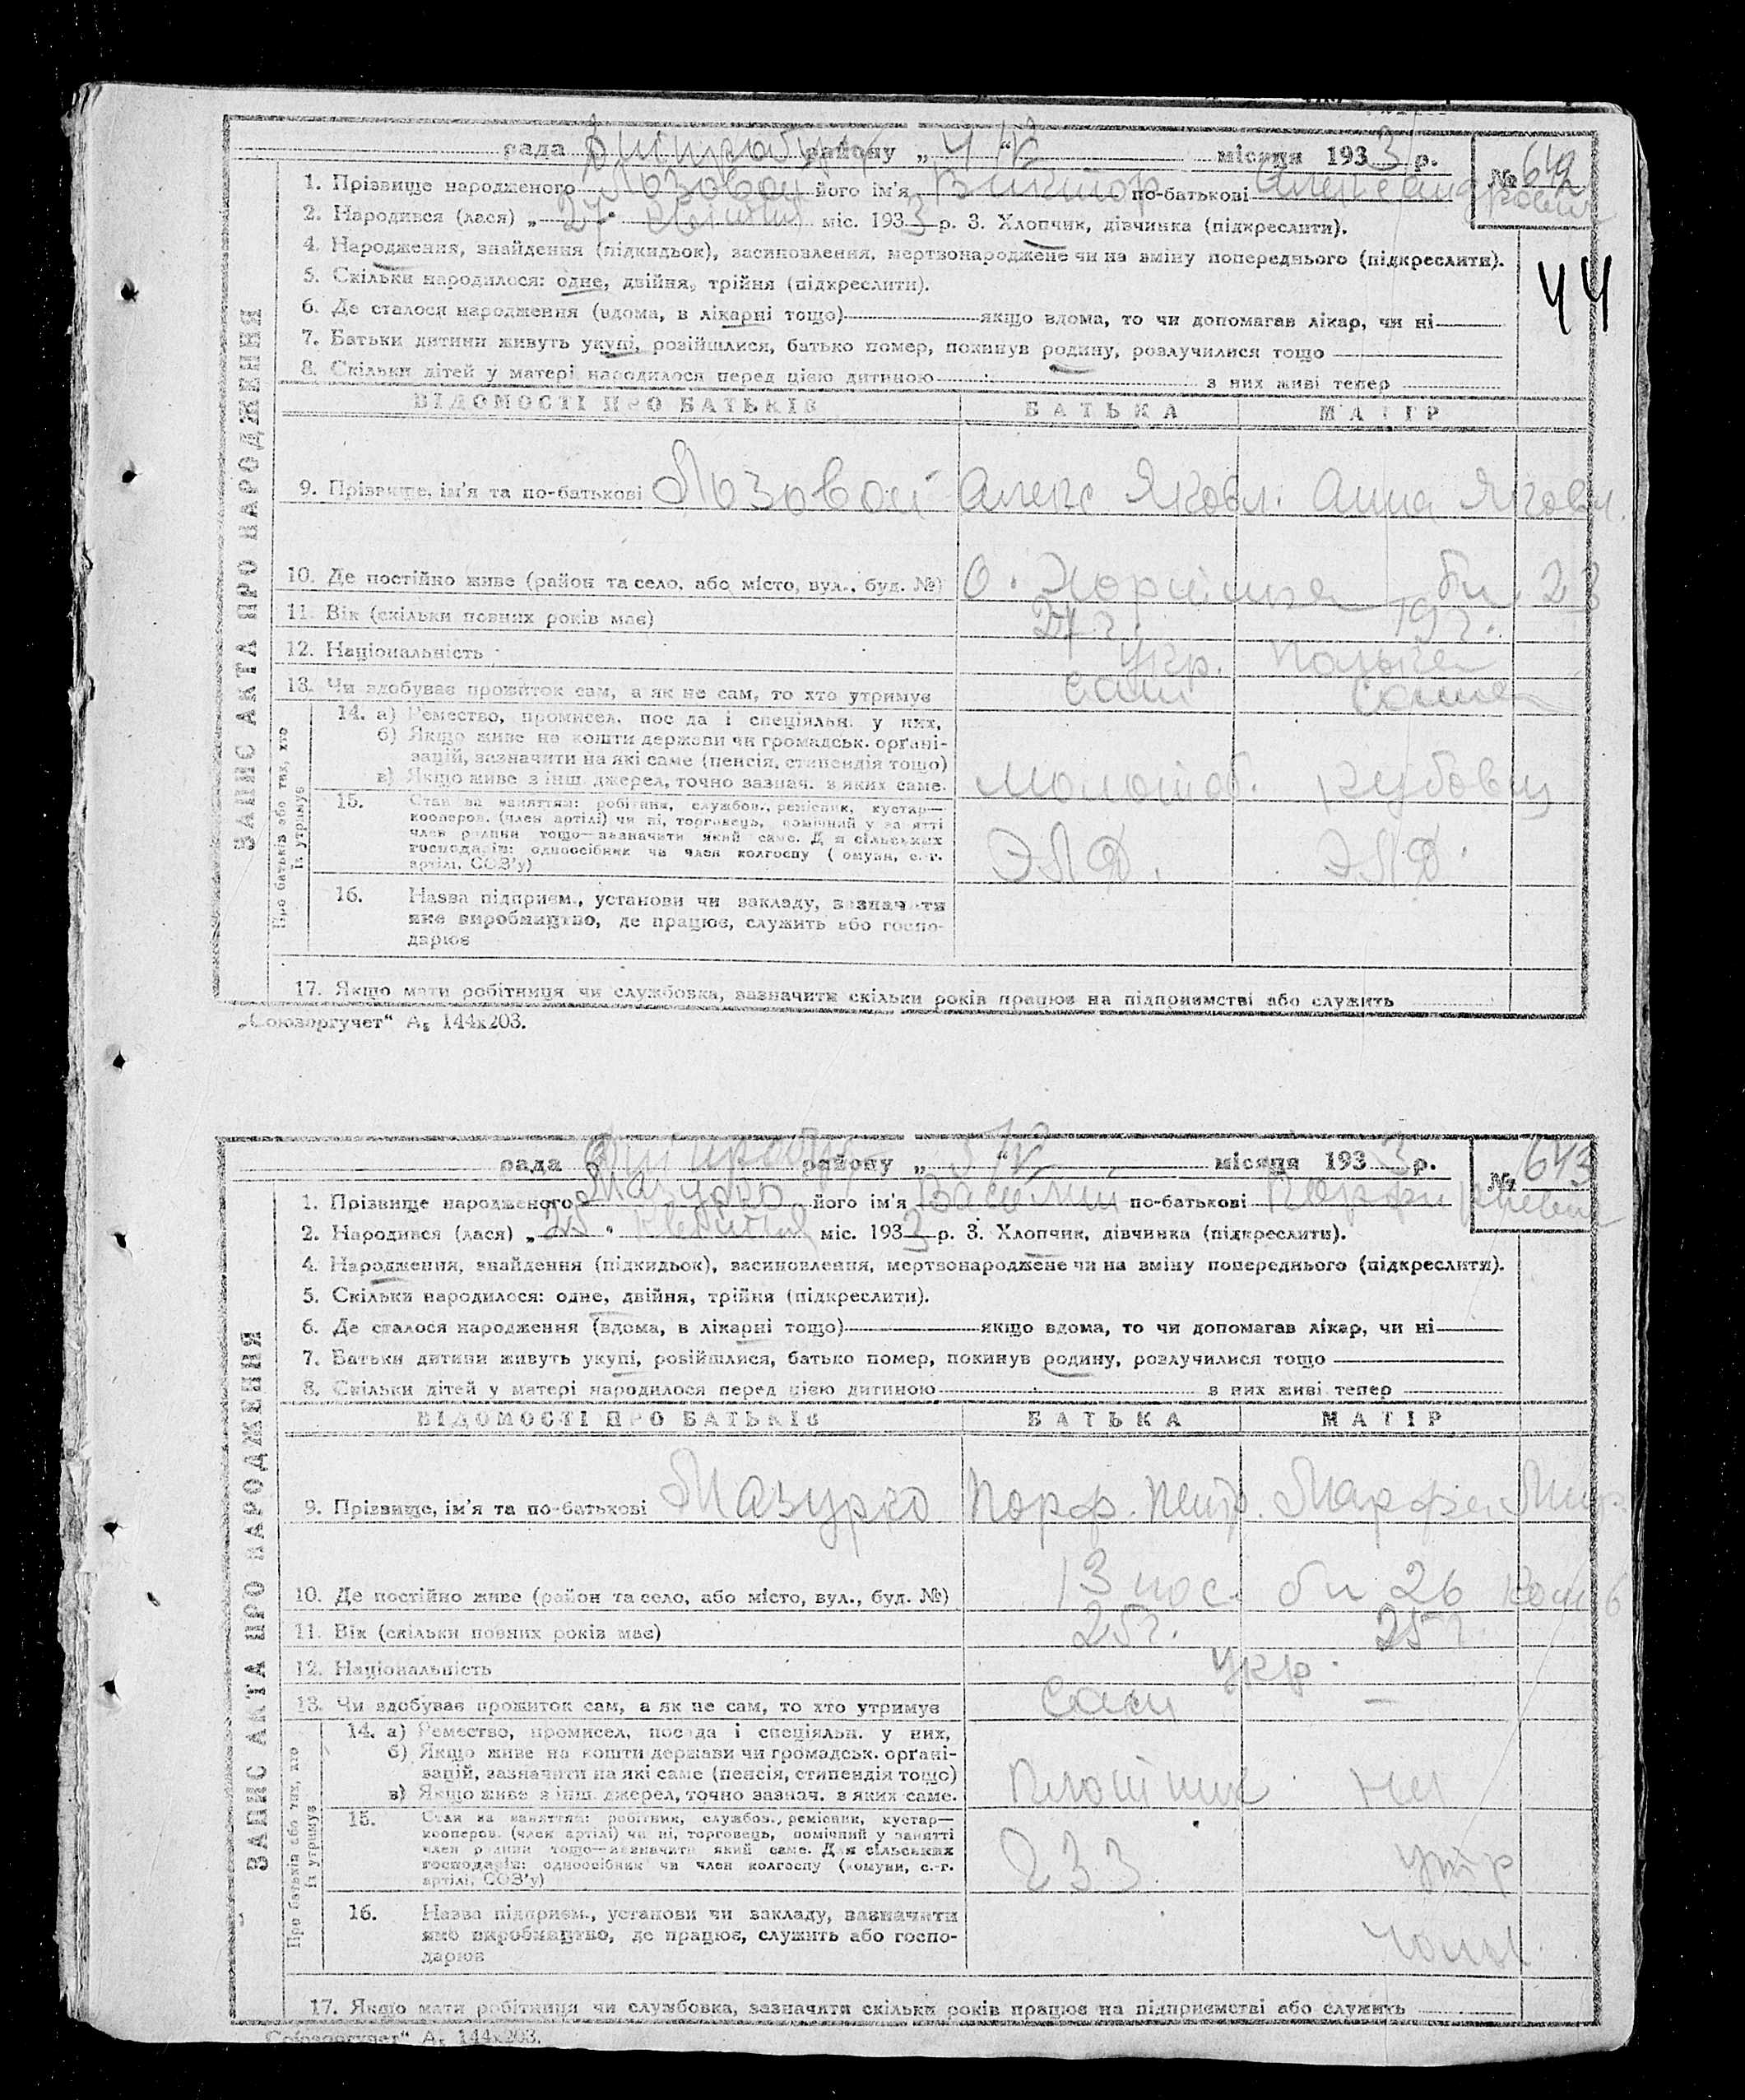 рада Дніпробуд району „ 4 “ V місяця 1933 р. № 642
1. Прізвище народженого Лозовой його ім'я Виктор по-батькові Александрович
2. Народився (лася) „ 27 “ міс. 1933 р. 3. Хлопчик, дівчинка (підкреслити).
44
4. Народження, знайдення (підкидьок), засиновлення, мертвонароджене чи на зміну попереднього (підкреслити).
5. Скільки народилося: одне, двійня, трійня (підкреслити).
6. Де сталося народження (вдома, в лікарні тощо) якщо вдома, то чи допомагав лікар, чи ні
7. Батьки дитини живуть укупі, розійшлися, батько помер, покинув родину, розлучилися тощо
8. Скільки дітей у матері народилося перед цією дитиною з них живі тепер
ЗАПИС АКТА ПРО НАРОДЖЕННЯ
ВІДОМОСТІ ПРО БАТЬКІВ БАТЬКА МАТІР
9. Прізвище, ім'я та по-батькові Лозовой Алекс Яковл. Анна Яковл.
10. Де постійно живе (район та село, або місто, вул., буд. №) О. Хортица 23
11. Вік (скільки повних років має) 19 г.
12. Національність Укр. Полька
13. Чи здобуває прожиток сам, а як не сам, то хто утримує сам сама
Про батьків або тих, хто їх утримує
14. а) Ремество, промисел, посада і спеціяльн. у них,
б) Якщо живе на кошти держави чи громадськ. орґані-
зацій, зазначити на які саме (пенсія, стипендія тощо)
в) Якщо живе з інш. джерел, точно зазнач. з яких саме. молотоб.
15. Стан за заняттям: робітник, службов., ремісник, кустар—
кооперов. (член артілі) чи ні, торговець, помічний у занятті
член родини тощо—зазначити який саме. Для сільських
господарів: одноосібник чи член колгоспу (комуни, с.-г.
артілі, СОЗ'у) ЭЛФ. ЭЛФ.
16. Назва підприєм., установи чи закладу, зазначити
яке виробництво, де працює, служить або госпо-
дарює
17. Якщо мати робітниця чи службовка, зазначити скільки років працює на підприємстві або служить
„Союзоргучет“ А₅ 144х203.
рада Дніпробуд району „ 5 “ V місяця 1933 р. № 643
1. Прізвище народженого Мазурко його ім'я Василий по-батькові Порфириевич
2. Народився (лася) „ “ міс. 1933 р. 3. Хлопчик, дівчинка (підкреслити).
4. Народження, знайдення (підкидьок), засиновлення, мертвонароджене чи на зміну попереднього (підкреслити).
5. Скільки народилося: одне, двійня, трійня (підкреслити).
6. Де сталося народження (вдома, в лікарні тощо) якщо вдома, то чи допомагав лікар, чи ні
7. Батьки дитини живуть укупі, розійшлися, батько помер, покинув родину, розлучилися тощо
8. Скільки дітей у матері народилося перед цією дитиною з них живі тепер
ЗАПИС АКТА ПРО НАРОДЖЕННЯ
ВІДОМОСТІ ПРО БАТЬКІВ БАТЬКА МАТІР
9. Прізвище, ім'я та по-батькові Мазурко Порф. Петр. Марфа
10. Де постійно живе (район та село, або місто, вул., буд. №) 13 пос. бл 26 ком 6
11. Вік (скільки повних років має) 25 г. 25 г.
12. Національність Укр.
13. Чи здобуває прожиток сам, а як не сам, то хто утримує сам —
Про батьків або тих, хто їх утримує
14. а) Ремество, промисел, посада і спеціяльн. у них,
б) Якщо живе на кошти держави чи громадськ. орґані-
зацій, зазначити на які саме (пенсія, стипендія тощо)
в) Якщо живе з інш. джерел, точно зазнач. з яких саме. плотник на
15. Стан за заняттям: робітник, службов., ремісник, кустар—
кооперов. (член артілі) чи ні, торговець, помічний у занятті
член родини тощо—зазначити який саме. Для сільських
господарів: одноосібник чи член колгоспу (комуни, с.-г.
артілі, СОЗ'у) 233. утр
16. Назва підприєм., установи чи закладу, зазначити
яке виробництво, де працює, служить або госпо-
дарює
17. Якщо мати робітниця чи службовка, зазначити скільки років працює на підприємстві або служить
„Союзоргучет“ А₅ 144х203.